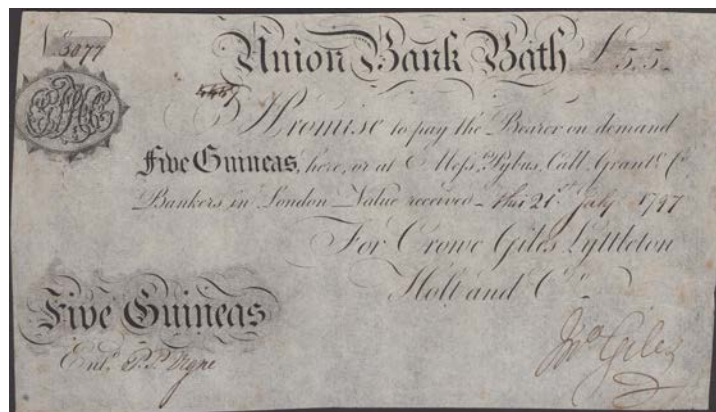 No. 3077
Union Bank Bath £5.5.
I Promise to pay the Bearer on demand
Five Guineas, here, or at Messrs. Pybus, Call, Grant & Co.
Bankers in London Value received this 21st July 1797
For Crowe Giles Lyttleton
Holt and Co.
Five Guineas
Entd.
Jno Giles